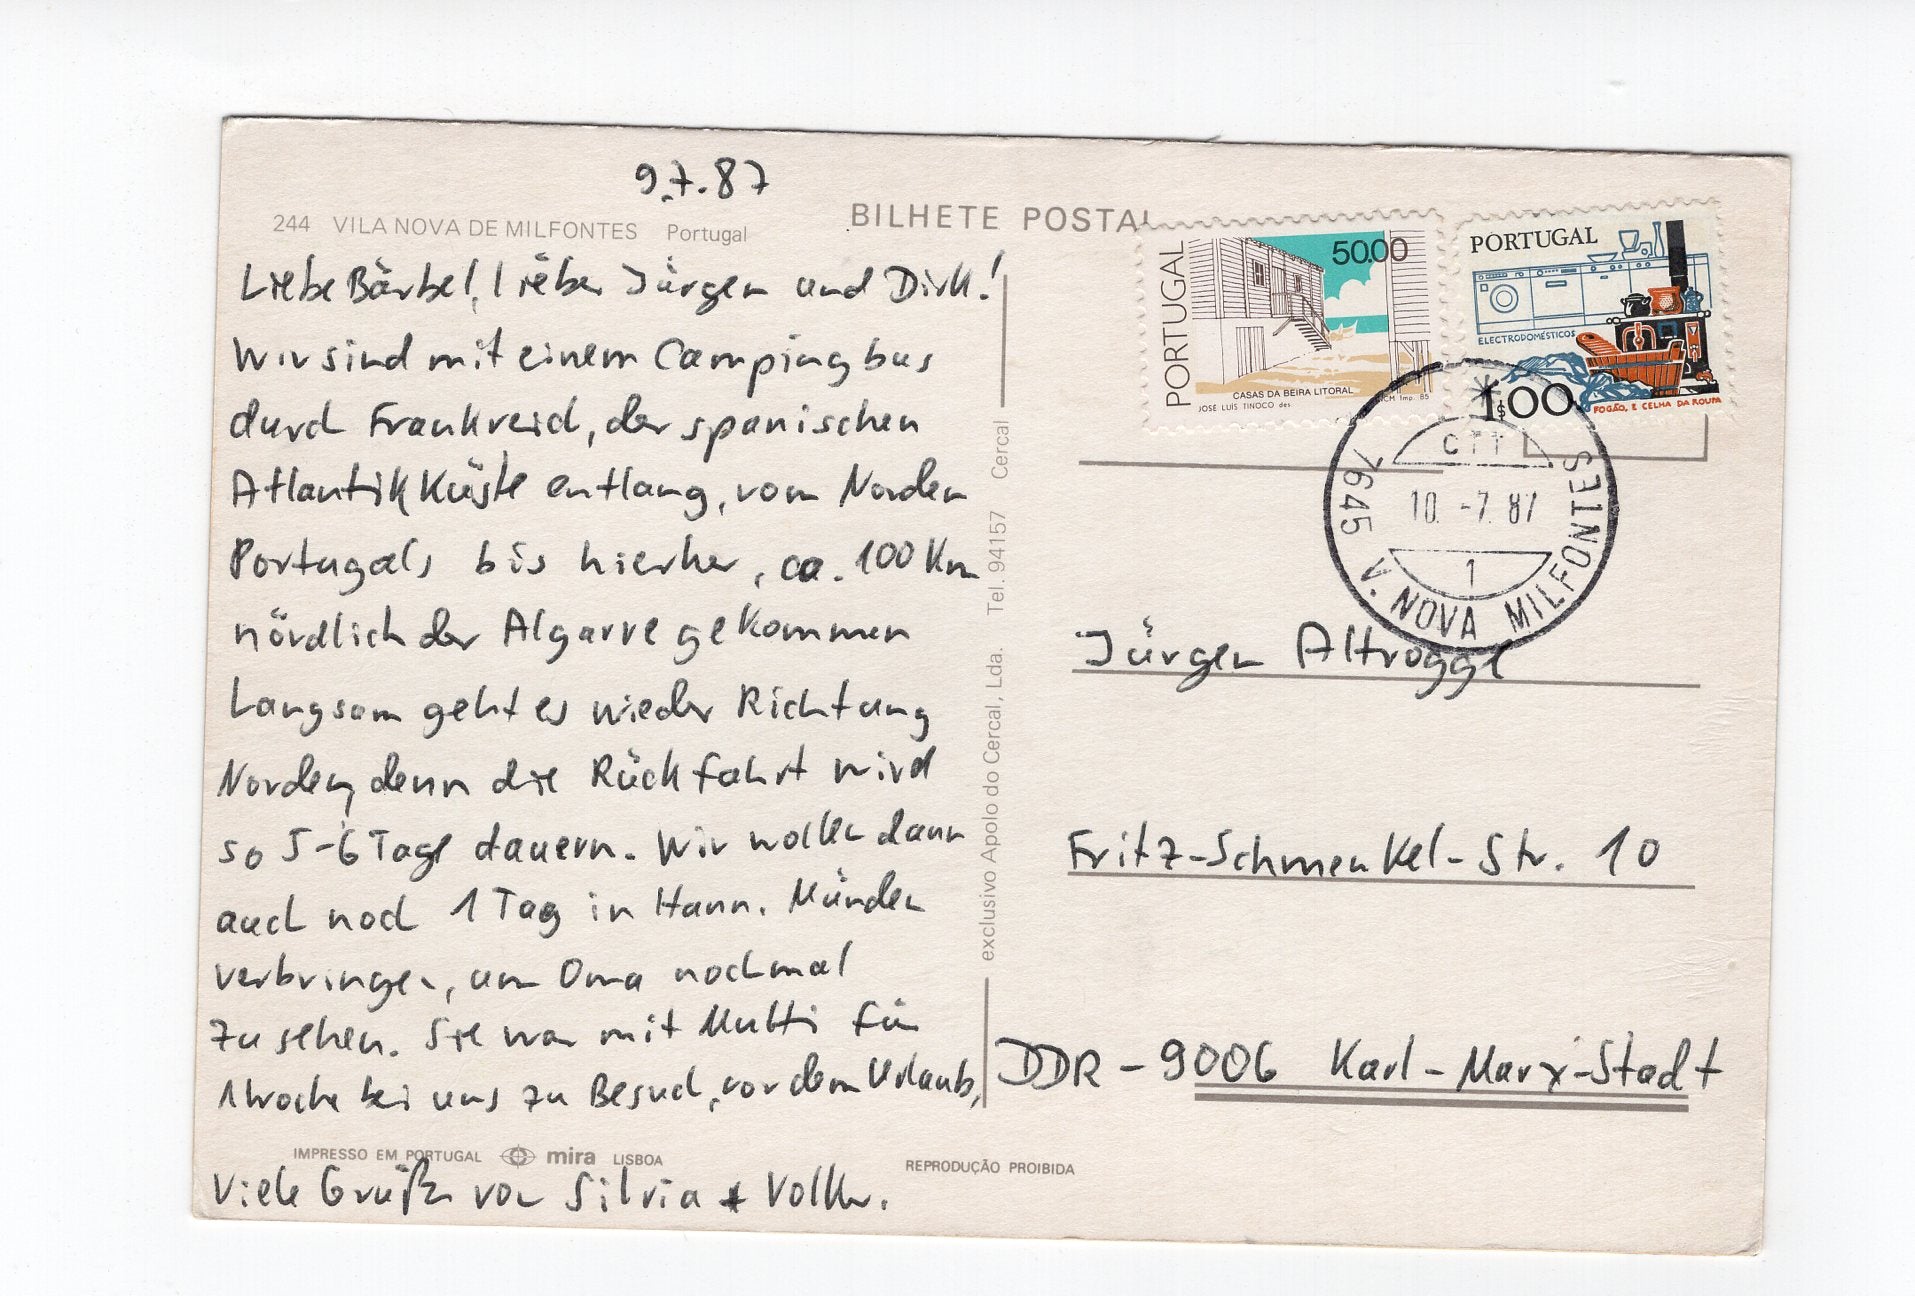 9.7.87
244 VILA NOVA DE MILFONTES Portugal
BILHETE POSTAL
Liebe Bärbel, lieber Jürgen und Dirk!
Wir sind mit einem Campingbus
durch Frankreich, der spanischen
Atlantikküste entlang, vom Norden
Portugals bis hierher, ca. 100 Km
nördlich der Algarve gekommen
Langsam geht es wieder Richtung
Norden, denn die Rückfahrt wird
so 5-6 Tage dauern. Wir wollen dann
auch noch 1 Tag in Hann. Münden
verbringen, um Oma nochmal
zu sehen. Sie war mit Mutti für
1 Woche bei uns zu Besuch, vor dem Urlaub,
Viele Grüße von Silvia + Volker.
IMPRESSO EM PORTUGAL mira LISBOA
REPRODUÇÃO PROIBIDA
exclusivo Apolo do Cercal, Lda. Tel. 94157 Cercal
PORTUGAL
50.00
CASAS DA BEIRA LITORAL
JOSÉ LUÍS TINOCO des
CM Imp. 85
PORTUGAL
ELECTRODOMÉSTICOS
1$00
FOGÃO, E CELHA DA ROUPA
CTT
10. -7. 87
1
7645 V. NOVA MILFONTES
Jürgen Altrogge
Fritz-Schmenkel-Str. 10
DDR - 9006 Karl-Marx-Stadt